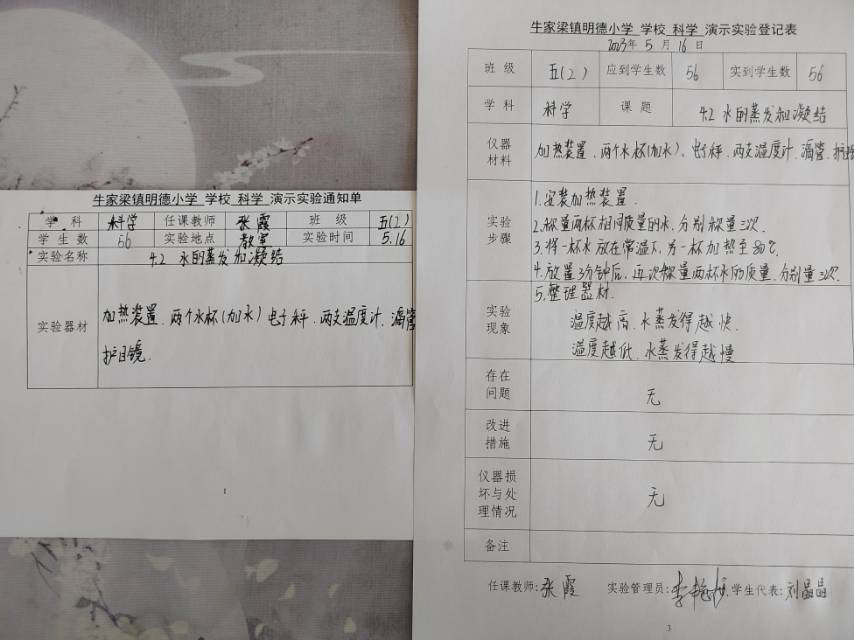 牛家梁镇明德小学 学校 科学 演示实验通知单
学 科 科学 任课教师 张霞 班 级 五(2)
学 生 数 56 实验地点 教室 实验时间 5.16
实验名称 4.2 水的蒸发和凝结
实验器材 加热装置、两个水杯(加水)电子秤、两支温度计、滴管
护目镜.
1
牛家梁镇明德小学 学校 科学 演示实验登记表
2023年 5 月 16 日
班 级 五(2) 应到学生数 56 实到学生数 56
学 科 科学 课 题 4.2 水的蒸发和凝结
仪器
材料
加热装置、两个水杯(加水)、电子秤、两支温度计、滴管、护
实验
步骤
1.安装加热装置.
2.称量两杯相同质量的水,分别称量三次.
3.将一杯水放在常温下,另一杯加热至80℃.
4.放置3分钟后,再次称量两杯水的质量,分别量三次.
5.整理器材.
实验
现象
温度越高,水蒸发得越快.
温度越低,水蒸发得越慢
存在
问题
无
改进
措施
无
仪器损
坏与处
理情况
无
备注
任课教师:张霞 实验管理员:李 学生代表:刘晶晶
3